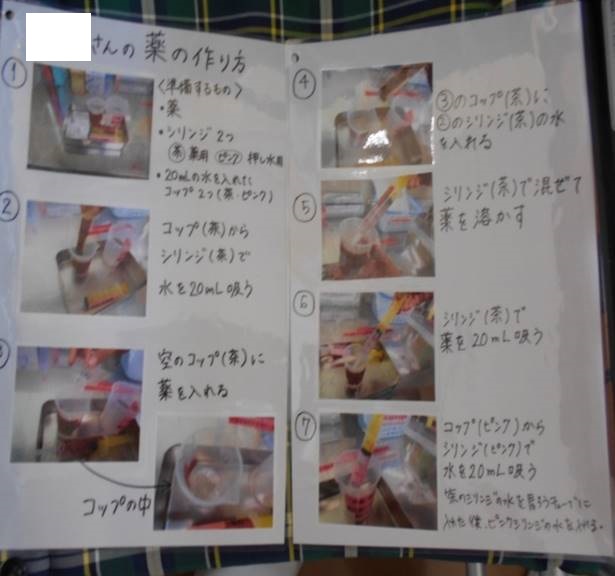 さんの薬の作り方
①
〈準備するもの〉
・薬
・シリンジ2つ
茶 薬用 ピンク 押し水用
・20mLの水を入れた
コップ2つ(茶・ピンク)
②
コップ(茶)から
シリンジ(茶)で
水を20mL吸う
空のコップ(茶)に
薬を入れる
コップの中
④
③のコップ(茶)に
②のシリンジ(茶)の水
を入れる
⑤
シリンジ(茶)で混ぜて
薬を溶かす
⑥
シリンジ(茶)で
薬を20mL吸う
⑦
コップ(ピンク)から
シリンジ(ピンク)で
水を20mL吸う
のシリンジの水を胃ろうチューブに
入れた後、ピンクシリンジの水を入れる。